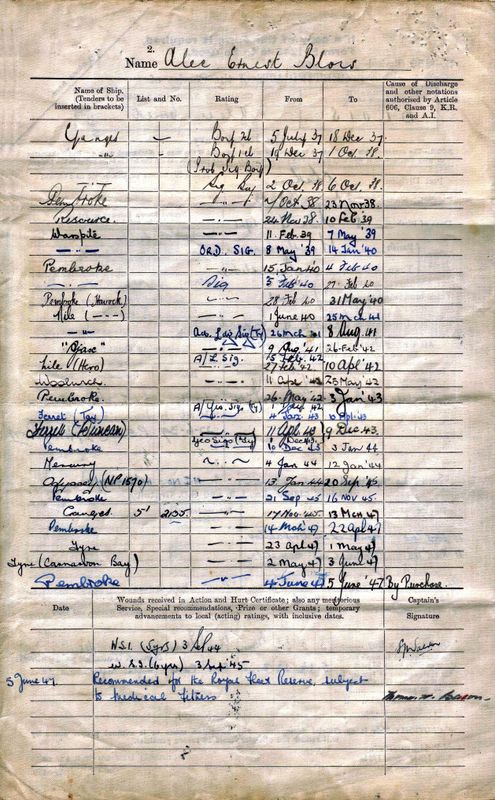 2.
Name Alec Ernest Blows
Name of Ship. (Tenders to be inserted in brackets) List and No. Rating From To Cause of Discharge and other notations authorised by Article 606, Clause 9, K.R. and A.I.
Ganges — Boy 2cl 5 July 37 18 Dec 37
" — Boy 1cl 19 Dec 37 1 Oct 38
Sig Boy 2 Oct 38 6 Oct 38
Pembroke — " — 7 Oct 38 23 Nov 38
Resource — " — 24 Nov 38 10 Feb 39
Warspite — " — 11 Feb 39 7 May '39
— " — ORD. SIG. 8 May '39 14 Jan '40
Pembroke — " — 15 Jan 40 4 Feb 40
— " — Sig 5 Feb '40 27 Feb 40
Pembroke (Havock) — " — 28 Feb 40 31 May '40
Nile (— " —) — " — 1 June 40 25 March 41
— " — Act. Ldg Sig (Ty) 26 Mch 41 8 Aug 41
— " — 9 Aug '41 26 Feb '42
A/L Sig. 15 Feb 42
Nile (Hero) — " — 27 Feb '42 10 Apl '42
Woolwich — " — 11 Apl '42 25 May '42
Pembroke — " — 26 May 42 3 Jan '43
A/Yeo. Sigs. (Ty)
Ferret (Tay) — " — 4 Jan 43 10 Apl 43
Ferret (Duncan) — " — 11 Apl 43 9 Dec 43
Yeo Sigs (Ty) 1 Dec 43
Pembroke — " — 10 Dec 43 3 Jan 44
Mercury — " — 4 Jan 44 12 Jan '44
Odyssey (NP 1570) — " — 13 Jan 44 20 Sep '45
Pembroke — " — 21 Sep 45 16 Nov 45
Ganges 5' 2135 — " — 17 Nov 45 13 Mch 47
Pembroke — " — 14 Mch 47 22 Apl 47
Tyne — " — 23 Apl 47 1 May 47
Tyne (Carnarvon Bay) — " — 2 May 47 3 June 47
Pembroke — " — 4 June 47 5 June '47 By Purchase.
Date Wounds received in Action and Hurt Certificate; also any meritorious Service, Special recommendations, Prize or other Grants; temporary advancements to local (acting) ratings, with inclusive dates. Captain's Signature
W.S.I. (5yrs) 3 Sep 44
W.S.I. (6yrs) 3 Sep '45
5 June 47 Recommended for the Royal Fleet Reserve, subject
to Medical Fitness